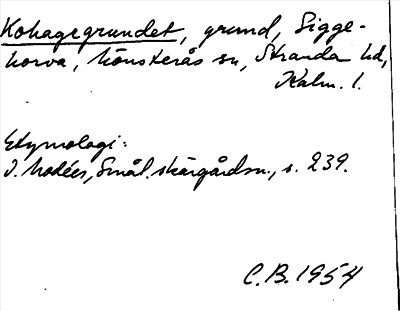 Kohagegrundet, grund, Sigge-
horva, Mönsterås sn, Stranda hd,
Kalm. l.
Etymologi:
I. Modéer, Smål. skärgårdsn., s. 239.
C.B. 1954